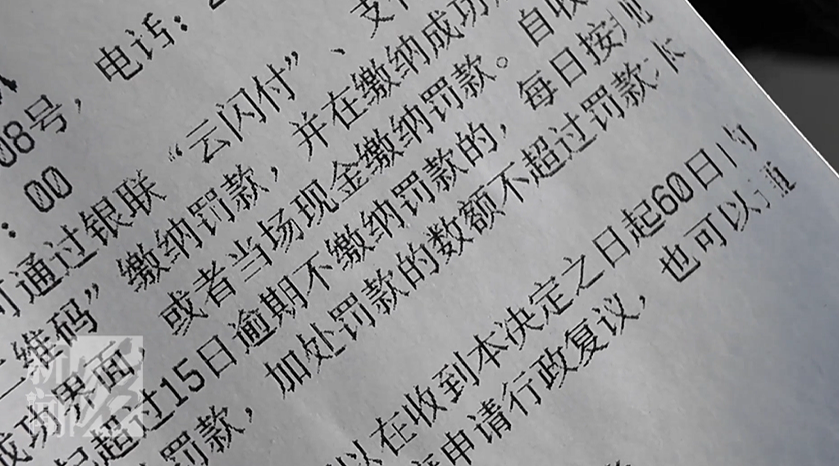 08号，电话：
：00
可通过银联“云闪付”、支
二维码”缴纳罚款，并在缴纳成功
成功界面，或者当场现金缴纳罚款。自收
起超过15日逾期不缴纳罚款的，每日按
罚款，加处罚款的数额不超过罚款本
以在收到本决定之日起60日内
申请行政复议，也可以
新闻